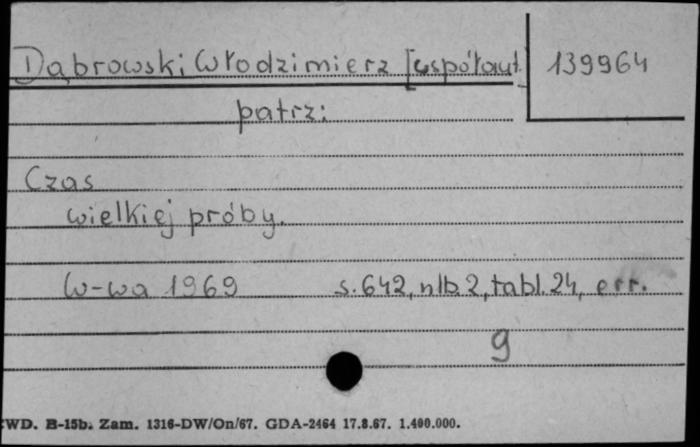 Dąbrowski Włodzimierz [współaut.] 139964
patrz:
Czas
wielkiej próby.
W-wa 1969 s. 642, nlb. 2, tabl. 24, err.
9
WD. B-15b. Zam. 1316-DW/On/67. GDA-2464 17.8.67. 1.400.000.